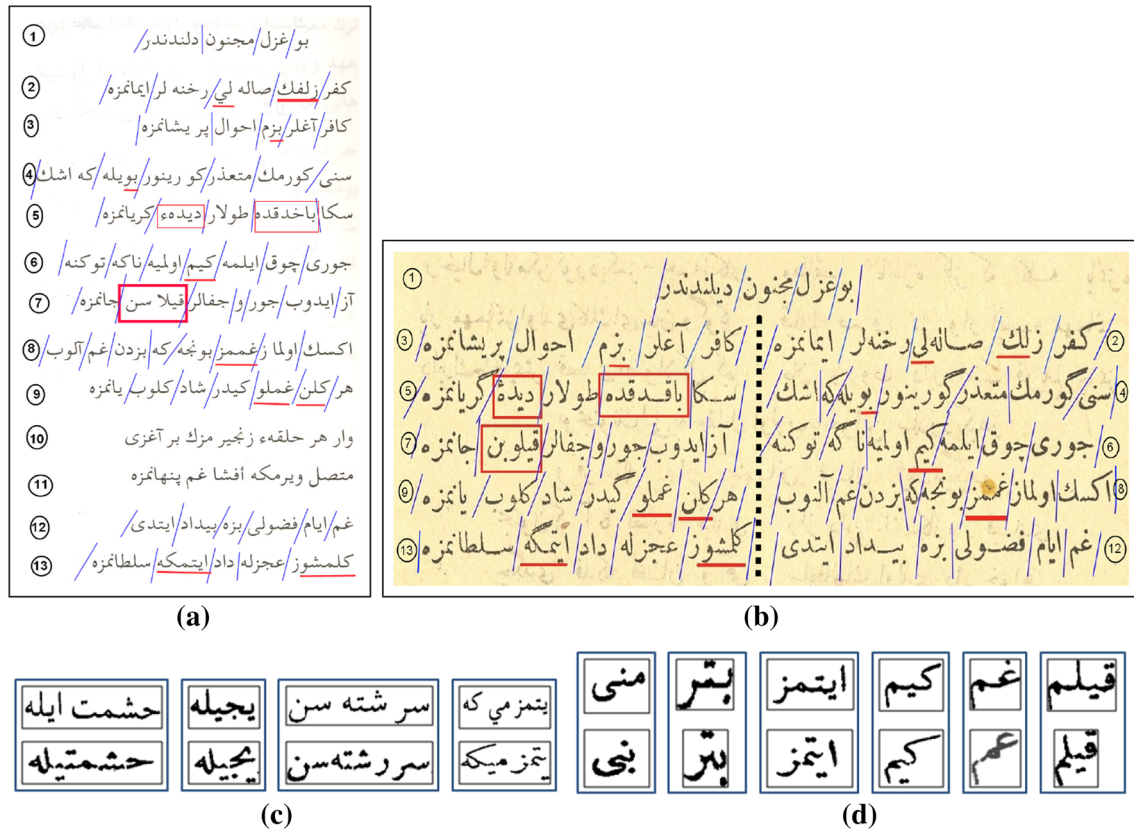 1 بو غزل مجنون دلندندر
2 كفر زلفك صاله لي رخنه لر ايمانمزه
3 كافر آغلر بزم احوال پر يشانمزه
4 سنى كورمك متعذر كو رينور بويله كه اشك
5 سكا باخدقده طولار ديدهء كريانمزه
6 جورى چوق ايلمه كيم اولميه ناكه توكنه
7 آز ايدوب جور و جفالر قيلا سن جانمزه
8 اكسك اولما زغممز بونجه كه بزدن غم آلوب
9 هر كلن غملو كيدر شاد كلوب يانمزه
10 وار هر حلقهء زنجير مزك بر آغزى
11 متصل ويرمكه أفشا غم پنهانمزه
12 غم ايام فضولى بزه بيداد ايتدى
13 كلمشوز عجزله داد ايتمكه سلطانمزه
(a)
1 بو غزل مجنون ديلندندر
2 گفر زلك صاله لى رخنه لر ايمانمزه
3 كافر آغلر بزم احوال پريشانمزه
4 سنى گورمك متعذر گورينور بويله كه اشك
5 سكا باقدقده طولار ديدۀ گريانمزه
6 جورى جوق ايلمه كيم اولميه ناگه توكنه
7 آز ايدوب جور و جفالر قيلوبن جانمزه
8 اكسك اولماز غممز بونجه كه بزدن غم آلوب
9 هر كلن غملو گيدر شاد كلوب يانمزه
12 غم ايام فضولى بزه بيداد ايتدى
13 كلمشوز عجزله داد ايتمگه سلطانمزه
(b)
حشمت ايله يجيله سر شته سن يتمز مي كه
حشمتيله يجيله سررشته سن يتمز ميكه
(c)
منى بتر ايتمز كيم غم قيلم
نبى بتر ايتمز كيم غم قيلم
(d)